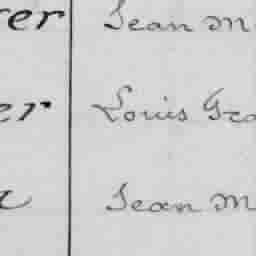 er Jean M
er Louis Gra
Jean M